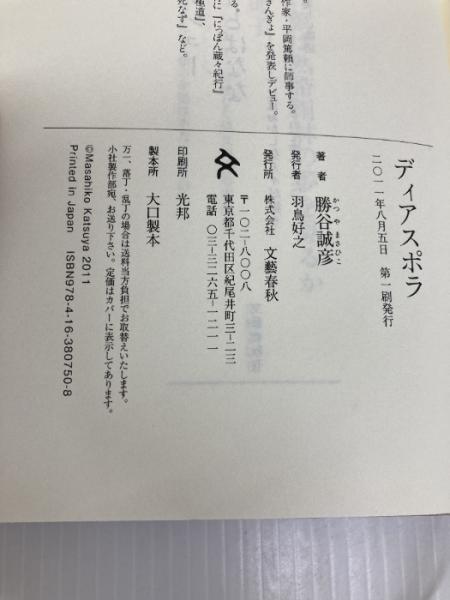 ディアスポラ
二〇一一年八月五日　第一刷発行
かつ や まさ ひこ
著　者　勝谷誠彦
発行者　羽鳥好之
発行所　株式会社　文藝春秋
〒一〇二-八〇〇八
東京都千代田区紀尾井町三-二三
電話　〇三-三二六五-一二一一
印刷所　光邦
製本所　大口製本
万一、落丁・乱丁の場合は送料当方負担でお取替えいたします。
小社製作部宛、お送り下さい。定価はカバーに表示してあります。
©Masahiko Katsuya 2011
Printed in Japan　ISBN978-4-16-380750-8
作家・平岡篤頼に師事する。
さんぎょ』を発表しデビュー。
る。
に『にっぽん蔵々紀行』
極道』、
死なず』など。